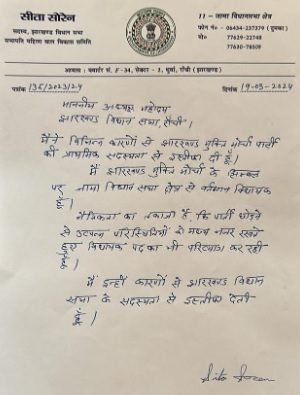 सीता सोरेन
सदस्य, झारखण्ड विधान सभा
सभापति महिला बाल विकास समिति
11 - जामा विधानसभा क्षेत्र
फोन नं० : 06434-237379 (दुमका)
मो० : 77629-22748
77630-78509
आवास : क्वार्टर सं. F-34, सेक्टर - 3, धुर्वा, राँची (झारखण्ड)
पत्रांक 135/2023/24
दिनांक 19-03-2024
माननीय अध्यक्ष महोदय
झारखण्ड विधान सभा, राँची।
मैंने विभिन्न कारणों से झारखण्ड मुक्ति मोर्चा पार्टी
की प्राथमिक सदस्यता से इस्तीफा दी हूँ।
मैं झारखण्ड मुक्ति मोर्चा के सिम्बल
पर जामा विधान सभा क्षेत्र से वर्तमान विधायक
हूँ।
नैतिकता का तकाजा है, कि पार्टी छोड़ने
से उत्पन्न परिस्थितियों के मध्य नजर रखते
हुए विधायक पद का भी परित्याग कर रही
हूँ।
मैं इन्हीं कारणों से झारखण्ड विधान
सभा के सदस्यता से इस्तीफा देती
हूँ।
Sita Soren